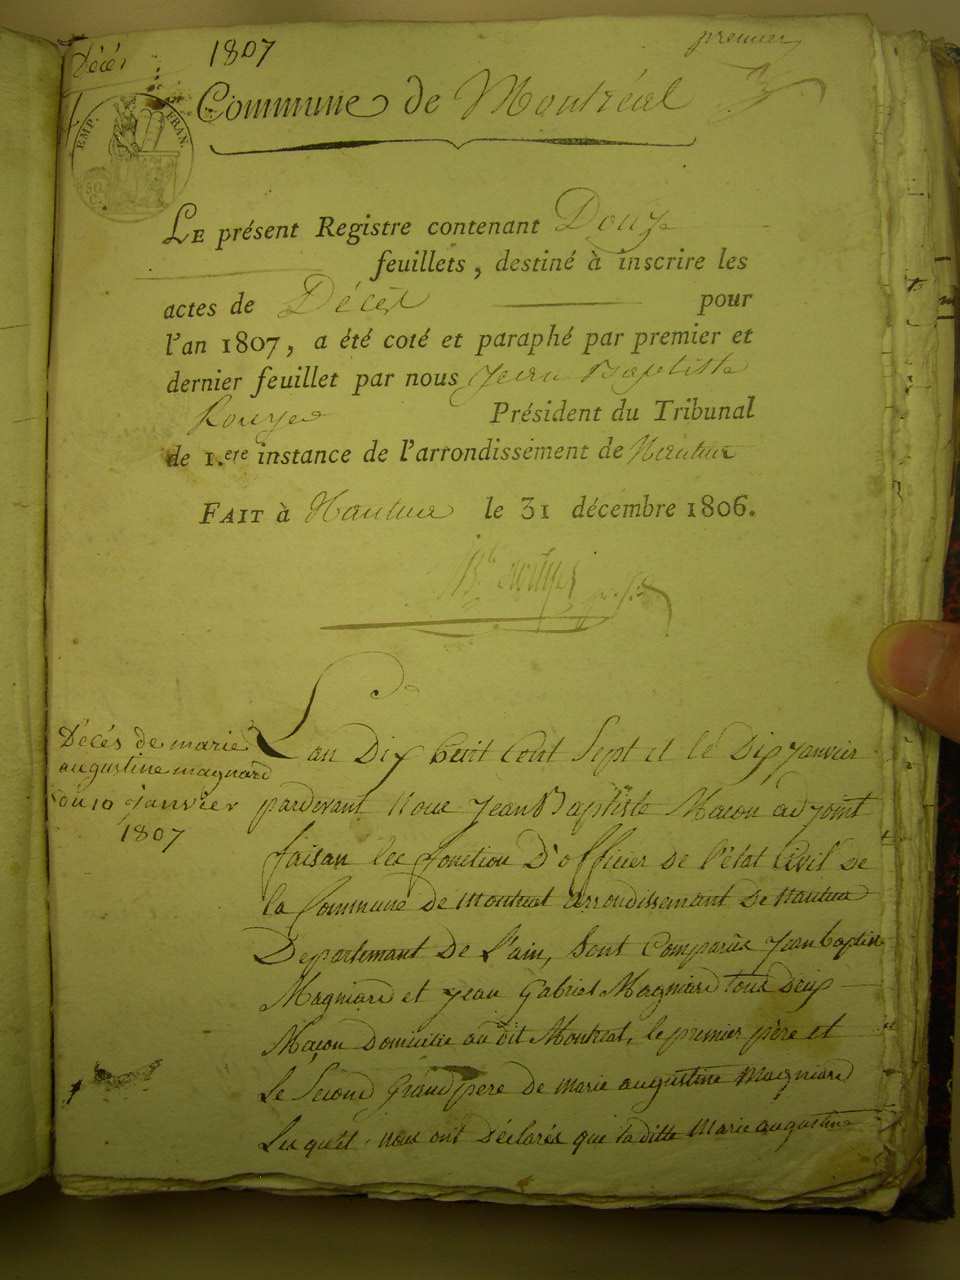 Décès
1807
premier
EMP. FRAN.
50 C.
Commune de Montréal
LE présent Registre contenant Douze
feuillets, destiné à inscrire les
actes de Décès pour
l'an 1807, a été coté et paraphé par premier et
dernier feuillet par nous Jean Baptiste
Rouyer Président du Tribunal
de 1.ere instance de l'arrondissement de Nantua
FAIT à Nantua le 31 décembre 1806.
Décès de marie
augustine magnard
du 10 Janvier
1807
L'an Dix huit Cent Sept et le Dix Janvier
pardevant Nous Jean Baptiste Macon adjoint
faisan les fonction D'officier de l'état Civil de
la Commune De Montreal arrondissemant De Nantua
Departemant De L'ain, Sont Comparus Jean baptiste
Magniard et Jean Gabriel Magniard tous Deux
Maçon Domicilié au dit Montreal, le premier père et
Le Second Grand pere de Marie augustine Magniard
Lesquels nous ont Déclarés que la ditte Marie augustine